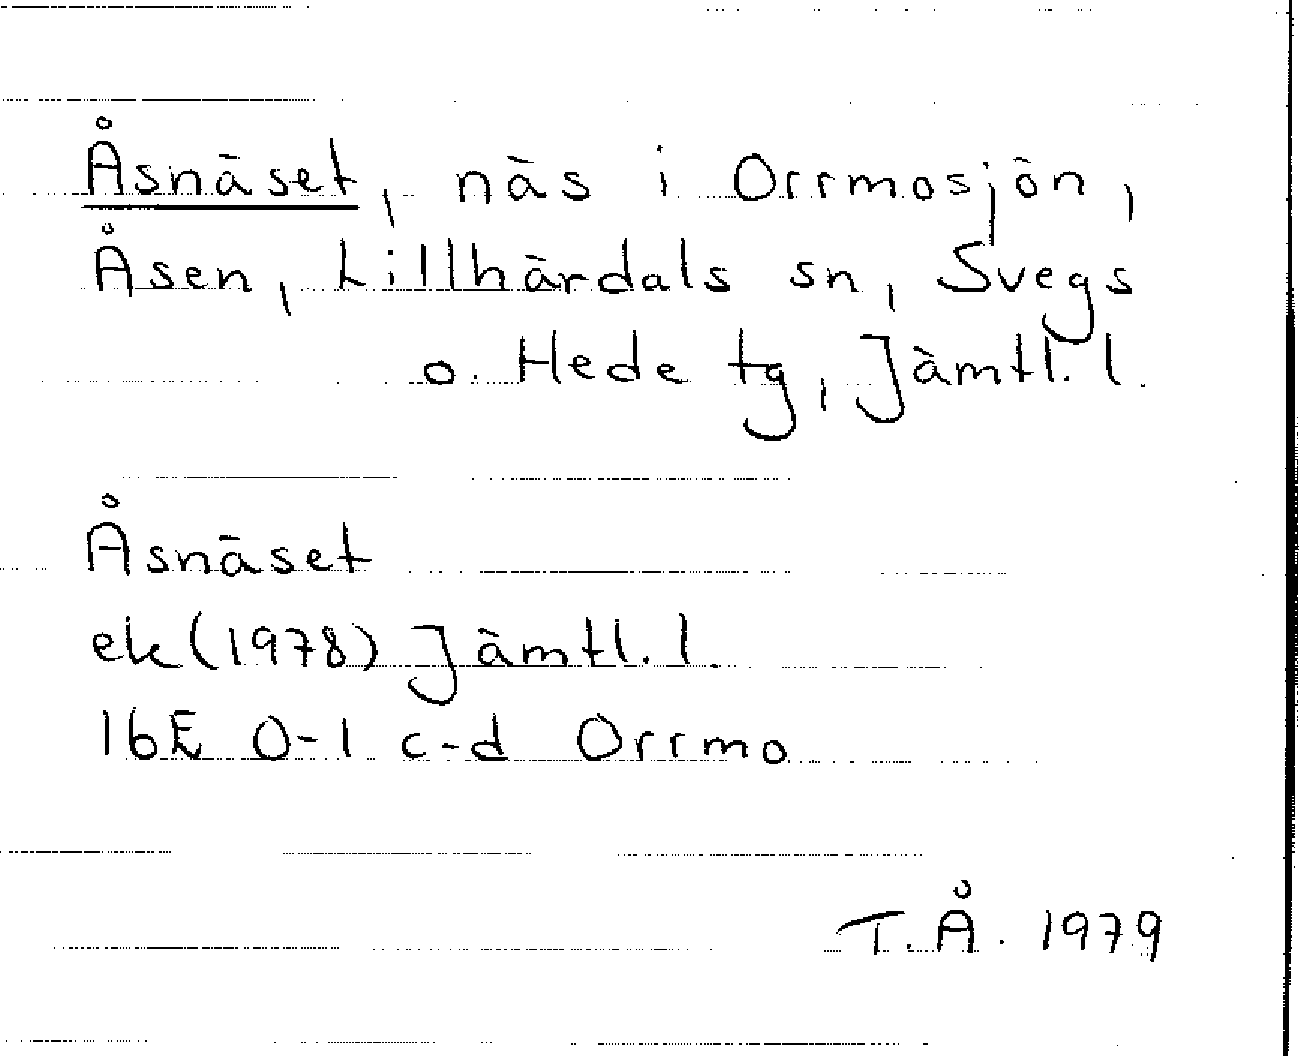 Åsnäset, näs i Orrmosjön,
Åsen, Lillhärdals sn, Svegs
o. Hede tg, Jämtl. l.
Åsnäset
ek (1978) Jämtl. l.
16E 0-1 c-d Orrmo
T.Å. 1979